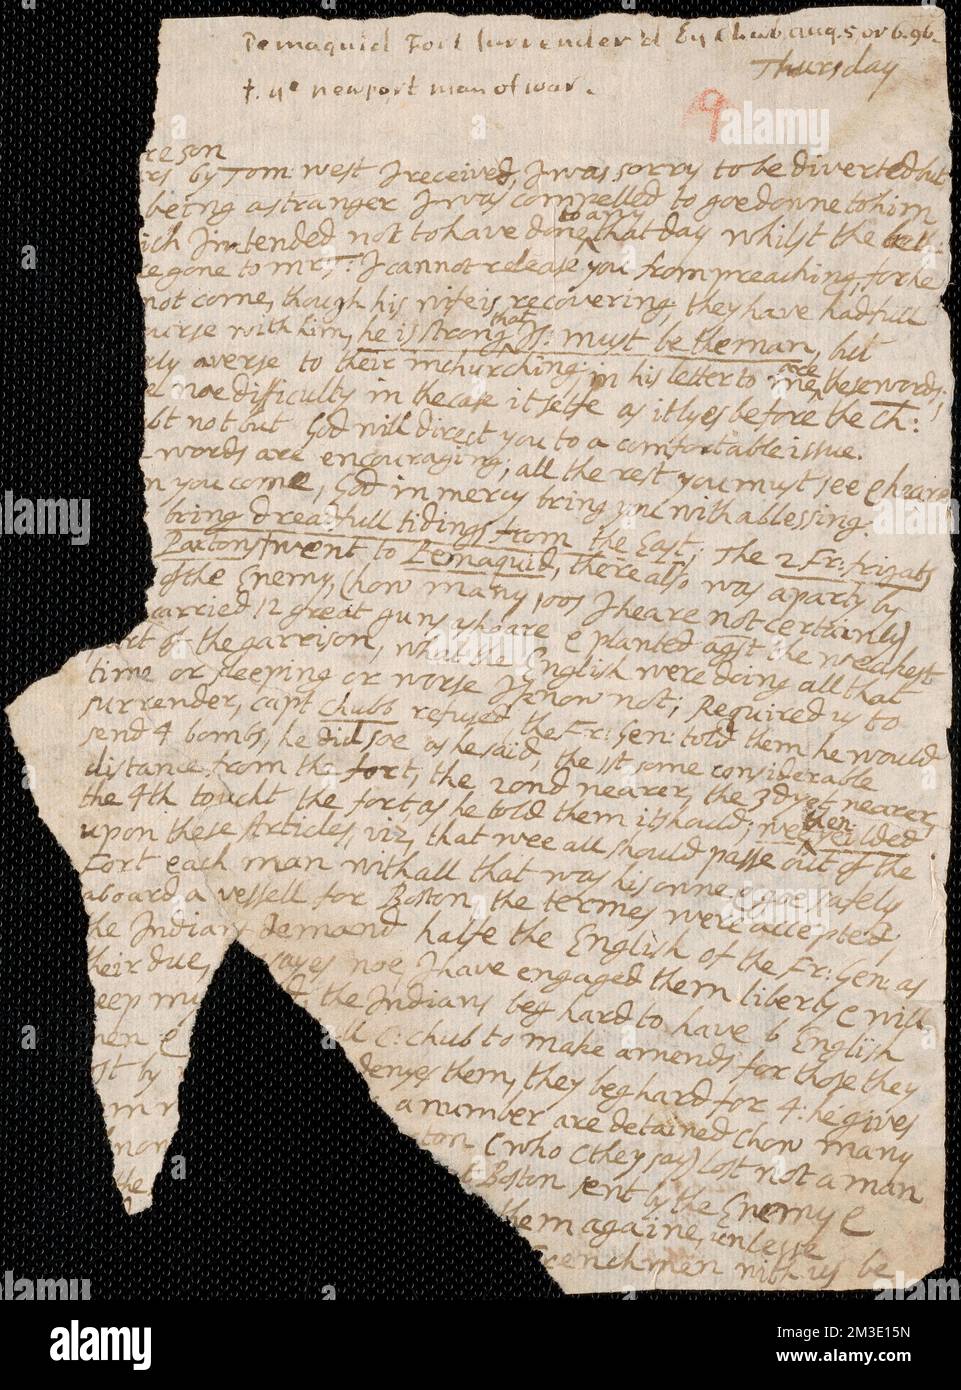 Pemaquid Fort surrender'd by Chub, aug. 5, or 6. 96.
Thursday
t. ye newport man of war.
9
re son
rs by Tom: west I received, I was sorry to be diverted but
being a stranger I was compelled to goe donne to him
ich I intended not to have done to any that day whilst the
re gone to mrs T: I cannot release you from preaching, for he
not come, though his wife is recovering, they have had full
ourse with him, he is strong that Js: must be the man, but
rly averse to their inchurching, in his letter to me, are these words;
e noe difficulty in the case it selfe as it lyes before the Ch:
bt not but God will direct you to a comfortable issue.
words are encouraging; all the rest you must see & heare
n you come, God in mercy bring you with a blessing.
bring dreadfull tidings from the East; The 2 Fr: frigats
Paxtons went to Pemaquid, there also was a party by
of the Enemy, (how many 100s I heare not certainly)
carried 12 great guns ashoare & planted agst the weakest
rt of the garrison, what the English were doing all that
time or sleeping or worse I know not; Required us to
surrender, capt Chubb refused, the Fr: Gen: told them he would
send 4 bombs, he did soe as he said, the 1st some considerable
distance from the fort, the 2ond nearer, the 3d yet nearer,
the 4th toucht the fort, as he told them it should; wee then yeilded
upon these Articles, viz, that wee all should passe out of the
Fort each man with all that was his onne, & goe safely
aboard a vessell for Boston, the termes were accepted;
he Indians demand halfe the English of the Fr: Gen: as
heir due, sayes noe, I have engaged them liberty & will
eep my the Indians beg hard to have 6 English
men & ll C: chub to make amends for those they
st by denyes them, they beg hard for 4: he gives
m a number are detained (how many
non ton (who (they say) lost not a man
the Boston sent by the Enemy &
them againe, unlesse
Frenchmen with us be
alamy
www.alamy.com
Image ID: 2M3E15N